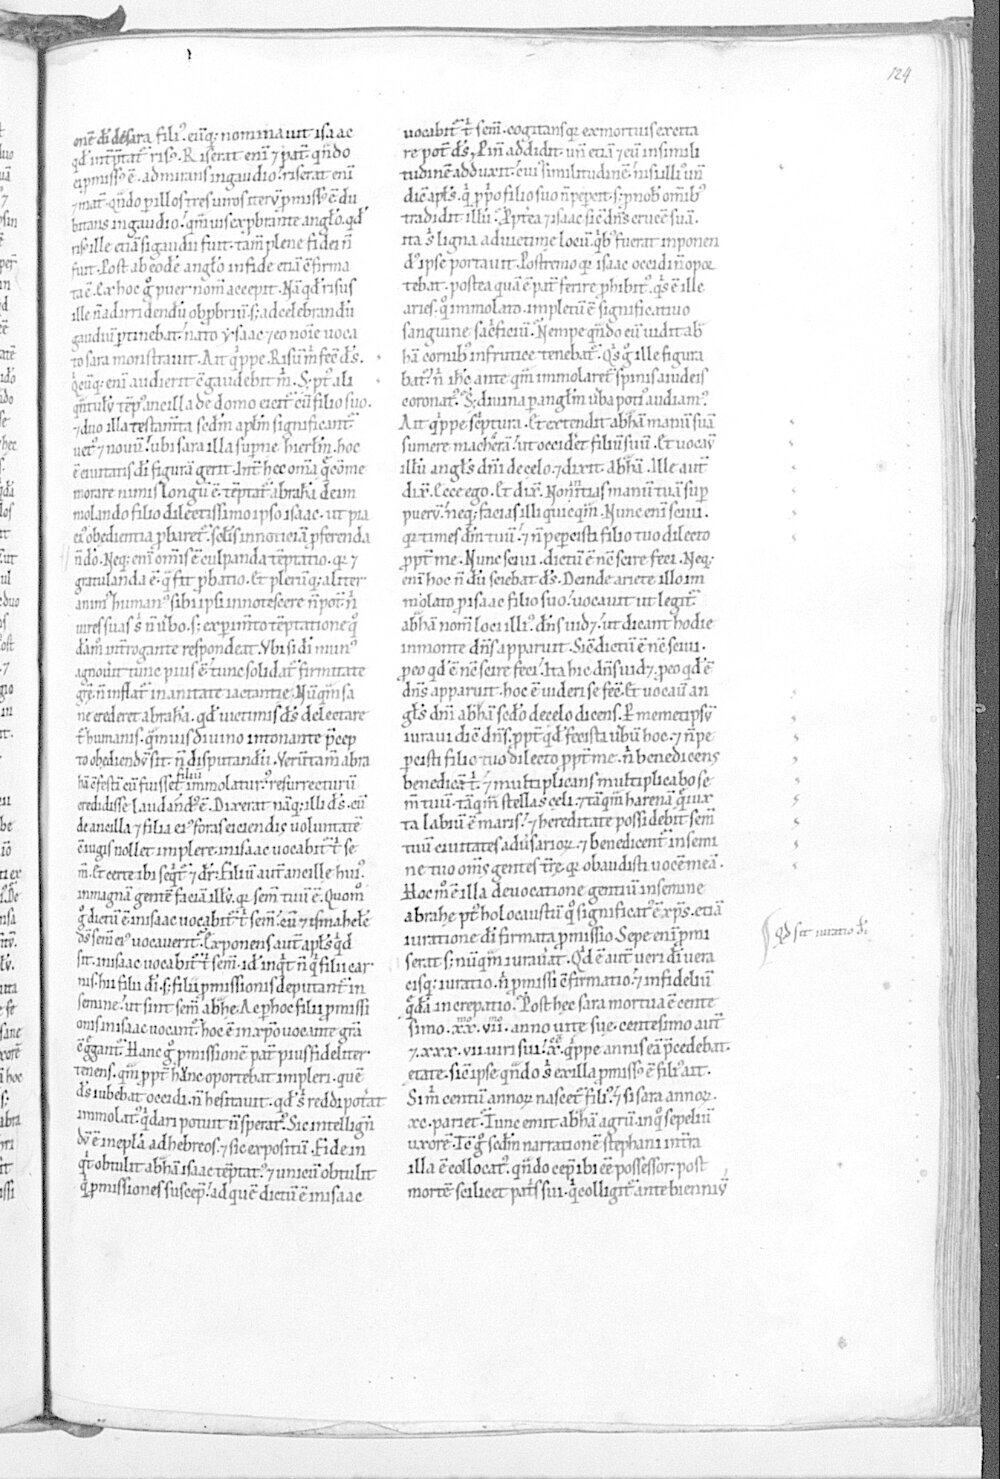 124
onē dī de sara filiꝰ. eūq; nominauit isaac
qđ int̄p̄tat᷑ risꝰ. Riserat eni᷑ ⁊ pat̄. qn̄do
ei p̄missꝰ ē. admirans in gaudio. riserat eni᷑
⁊ mat̄. qn̄do per illos tres uiros iteꝝ p̄missꝰ ē du
bitans in gaudio. qm̄uis exp̄brante anglo. qđ
risꝰ ille etiā si gaudii fuit. tam̄ plene fidei n̄
fuit. Post ab eođē anglo in fide etiā ē firma
ta ē. Ex hoc ḡ puer nom̄ accepit. Nā qđ risus
ille n̄ ad irridendū obp̄briū. s; ad celebrandū
gaudiū ꝑtinebat. nato ysaac ⁊ eo noīe uoca
to sara monstrauit. Ait q̄ppe. Risū m̄ fec̄ d̄s.
Q̄cūq; eni᷑ audierit cgaudebit m̄. S; pꝰ ali
qn̄tulū tēpꝰ ancilla de domo eicit᷑ cū filio suo.
⁊ duo illa testam̄ta sc̄dm apl̄m significant᷑
uetꝰ ⁊ nouū. ubi sara illa sup̄ne hierl̄m. hoc
ē ciuitatis dī figurā gerit. Int̄ hec om̄a q̄ cōme
morare nimis longū ē. tēptat᷑ abrahā de im
molando filio dilectissimo ipso isaac. ut pia
eiꝰ obedientia ꝓbaret᷑. sc̄lis in noticiā ꝓferenda
n̄ dō. Neq; eni᷑ om̄is ē culpanda tēptatio. qꝛ ⁊
gratulanda ē. q̄ fit ꝓbatio. Et plerūq; aliter
animꝰ humanꝰ sibi ipsi innotescere n̄ pot̄. n̄
uires suas s̄ n̄ u̇bo. s; experim̄to tēptatione qꝰ
dām̄ int̄rogante respondeat. Vbi si dī munꝰ
agnouit tunc pius ē. tunc solidat᷑ firmitate
grē. n̄ inflat᷑ inanitate iactantie. Nūqm̄ sa
ne crederet abrahā. qđ uictimis d̄s delectare
t᷑ humanis. qm̄uis diuino intonante p̄cep
to obediendū sit. n̄ disputandū. Verūtam̄ abra
hā c̄festi eū fuisset filiū immolatur. resurrecturū
credidisse laudandꝰ ē. Dixerat nāq; illi d̄s. cū
de ancilla ⁊ filia eiꝰ foras eiciendis uoluntatē
c̄iugis nollet implere. in isaac uocabit᷑ t᷑ se
m̄. Et certe ibi seqt᷑ ⁊ dr̄. Filiū aut̄ ancille huiꝰ.
in magnā gentē faciā illū. qꝛ sem̄ tuū ē. Quom̄
ḡ dictū ē in isaac uocabit᷑ t᷑ sem̄. cū ⁊ ismahelē
d̄s sem̄ eiꝰ uocauerit. Exponens aut̄ apl̄s qđ
sit. in isaac uocabit᷑ t᷑ sem̄. id inqt n̄ q̄ filii car
nis. hii filii dī. s; filii ꝓmissionis deputant᷑ in
semine. ut sint sem̄ abhe. Ac ꝑ hoc filii ꝓmissi
onis in isaac uocant᷑. hoc ē in xp̄o uocante grā
c̄ggant᷑. Hanc ḡ ꝓmissionē pat̄ pius fideliter
tenens. qm̄ ꝑpt̄ hāc oportebat impleri. quē
d̄s iubebat occidi. n̄ hesitauit. qđ s̄ reddi poterat
immolatꝰ. q̄ dari potuit n̄ speratꝰ. Sic intellign̄
dū ē in epl̄a ad hebreos. ⁊ sic expositū. Fide in
q̄t obtulit abhā isaac tēptatꝰ. ⁊ unicū obtulit
q̄ ꝓmissiones suscep̄. ad quē dictū ē in isaac
uocabit᷑ t᷑ sem̄. cogitans qꝛ ex mortuis excita
re pot̄ d̄s. Ꝑ in addidit. un̄ etiā ⁊ eū in simili
tudinē adduxit. cuiꝰ similitudinē nisi illiꝰ un̄
dic̄ apl̄s. q̄ ꝓp̄o filio suo n̄ peꝑcit. s; ꝓ nob̄ om̄ibꝰ
tradidit illū. Ꝓpt̄ea ⁊ isaac sic̄ dn̄s crucē suā.
ita s̄ ligna ad uictime locū. q̄bꝰ fuerat inponen
dꝰ ipse portauit. Postremo qꝛ isaac occidi n̄ opor
tebat. postea quā ē pat̄ ferire ꝓhibitꝰ. q̄s ē ille
aries. qꝰ immolato. impletū ē significatiuo
sanguine sac̄ficiū. Nempe qn̄do eū uidit ab
hā cornibꝰ in frutice tenebat᷑. Q̄s ḡ ille figura
bat᷑. n̄ ih̄c ante qm̄ immolaret᷑ spinis iudeis
coronatꝰ. S; diuina ꝑ anglm̄ uerba potiꝰ audiamꝰ.
Ait q̄ppe sc̄ptura. Et extendit abhā manū suā
sumere macherā. ut occidet filiū suū. Et uocaū
illū angl̄s dn̄i de celo. ⁊ dixit. abhā. Ille aut̄
dix̄. Ecce ego. Et dix̄. Non initias manū tuā suꝑ
puerū. neq; facias illi quicqm̄. Nunc eni᷑ sciui.
qꝛ times dm̄ tuū. ⁊ n̄ peꝑcisti filio tuo dilecto
ꝓpt̄ me. Nunc sciui. dictū ē nc̄ scire feci. Neq;
eni᷑ hoc n̄ dū sciebat d̄s. Deinde ariete illo im
molato ꝓ isaac filio suo. uocauit ut legit᷑
abhā nom̄ loci illiꝰ. dn̄s uidꝫ. ut dicant hodie
in monte dn̄s apparuit. Sic̄ dictū ē nc̄ sciui.
ꝓ eo qđ ē nc̄ scire feci. Ita hic dn̄s uidꝫ. ꝓ eo qđ ē
dn̄s apparuit. hoc ē uideri se fec̄. Et uocaū an
gl̄s dn̄i abhā sc̄do de celo dicens. Ꝑ memetipsū
iuraui dic̄ dn̄s. ꝓpt̄ qđ fecisti ubū hoc. ⁊ n̄ pe
ꝑcisti filio tuo dilecto ꝓpt̄ me. n̄ benedicens
benedicā t᷑. ⁊ multiplicans multiplicabo se
m̄ tuū. tāqm̄ stellas celi. ⁊ tāqm̄ harenā q̄ iux
ta labiū ē maris. ⁊ hereditate possidebit sem̄
tuū ciuitates adūsarioꝝ. ⁊ benedicent᷑ in semi
ne tuo om̄s gentes t̄re. qꝛ obaudisti uocē meā.
Hoc m̄ ē illa de uocatione gentiū in semine
abrahe pꝰ holocaustū qꝰ significatꝰ ē xp̄s. etiā
iuratione dī firmata ꝓmissio. Sepe eni᷑ ꝓmi
serat s; nūqm̄ iurau̇at. Qđ ē aut̄ ueri dī uera
cisq; iuratio. n̄ ꝓmissi c̄firmatio. ⁊ infideliū
q̄dā increpatio. Post hec sara mortua ē cente
simo. xxᵐᵒ. viiᵐᵒ. anno uite sue. centesimo aut̄
⁊. xxx. vii. uiri sui. x̄. q̄ppe annis eā p̄cedebat.
etate. sic̄ ipse qn̄do s̄ ex illa ꝓmissꝰ ē filiꝰ. ait.
Si m̄ centū annoꝝ nascet᷑ filiꝰ. ⁊ si sara annoꝝ.
xc. pariet. Tunc emit abhā agrū. in qꝰ sepeliū
uxorē. Tc̄ ḡ sc̄dm narrationē stephani in tr̄a
illa ē collocatꝰ. qn̄do cep̄ ibi eē possessor. post
mortē scilicet patris sui. q̄ colligit᷑ ante bienniū
Qđ sit iuratio dī.